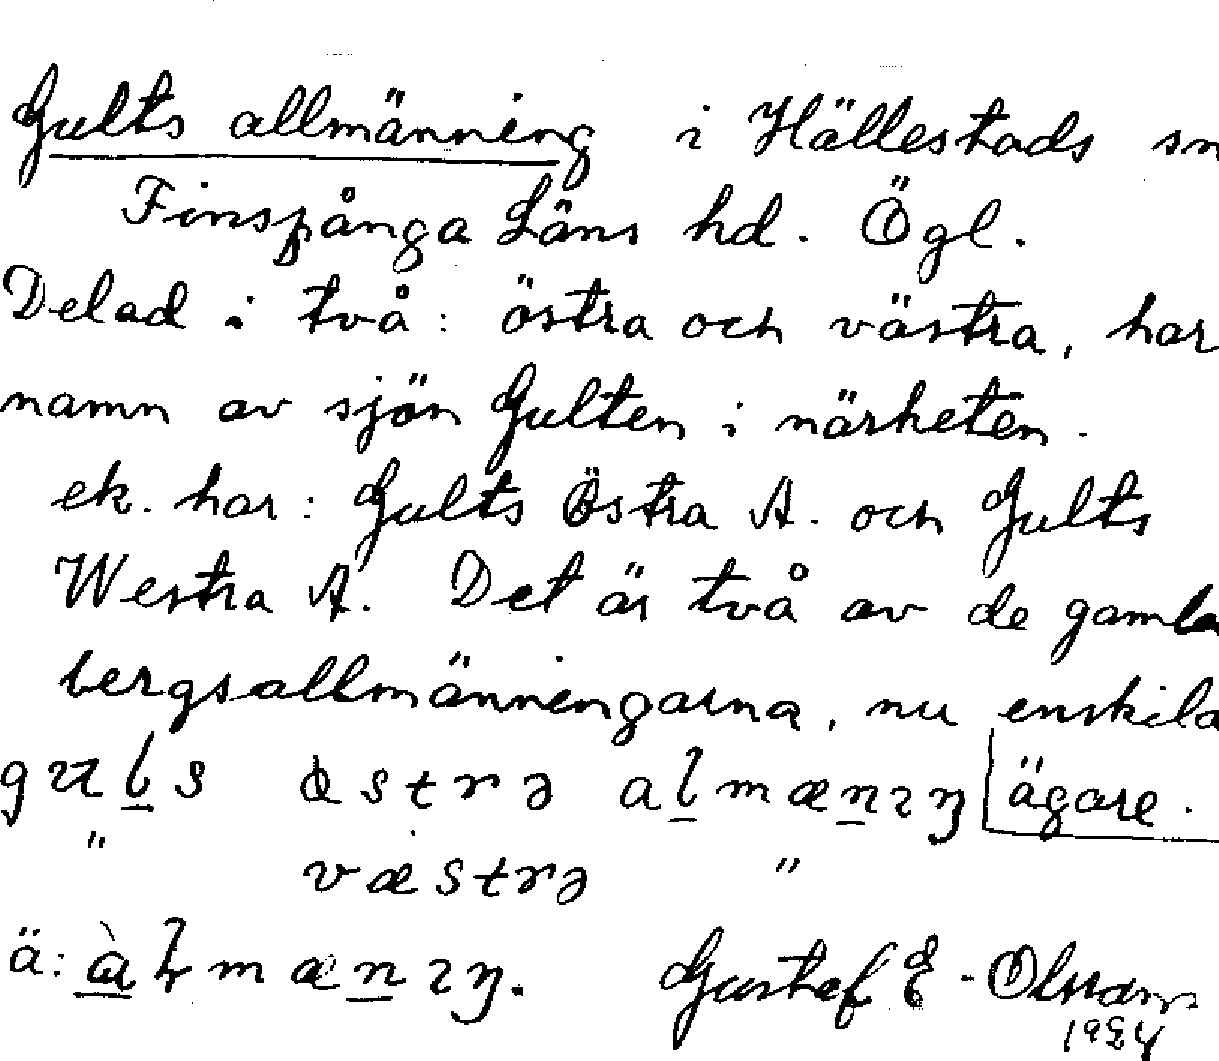 Gults allmänning i Hällestads sn
Finspånga Läns hd. Ögl.
Delad i två: östra och västra, har
namn av sjön Gulten i närheten.
ek. har: Gults Östra A. och Gults
Westra A. Det är två av de gamla
bergsallmänningarna, nu enskila
ägare.
västrə "
Gustaf E. Olsson
1934